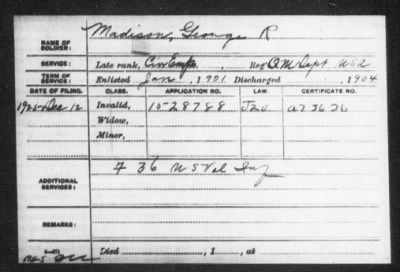 NAME OF SOLDIER: Madison, George R
SERVICE: Late rank, Civ Emp, Reg't Q M Dept USA
TERM OF SERVICE: Enlisted Jan, 1901 Discharged , 1904
DATE OF FILING. CLASS. APPLICATION NO. LAW. CERTIFICATE NO.
1925 Dec 12 Invalid, 1528788 J20
Widow,
Minor,
ADDITIONAL SERVICES: F 36 U S Vol Inf
REMARKS:
Died , 1 , at